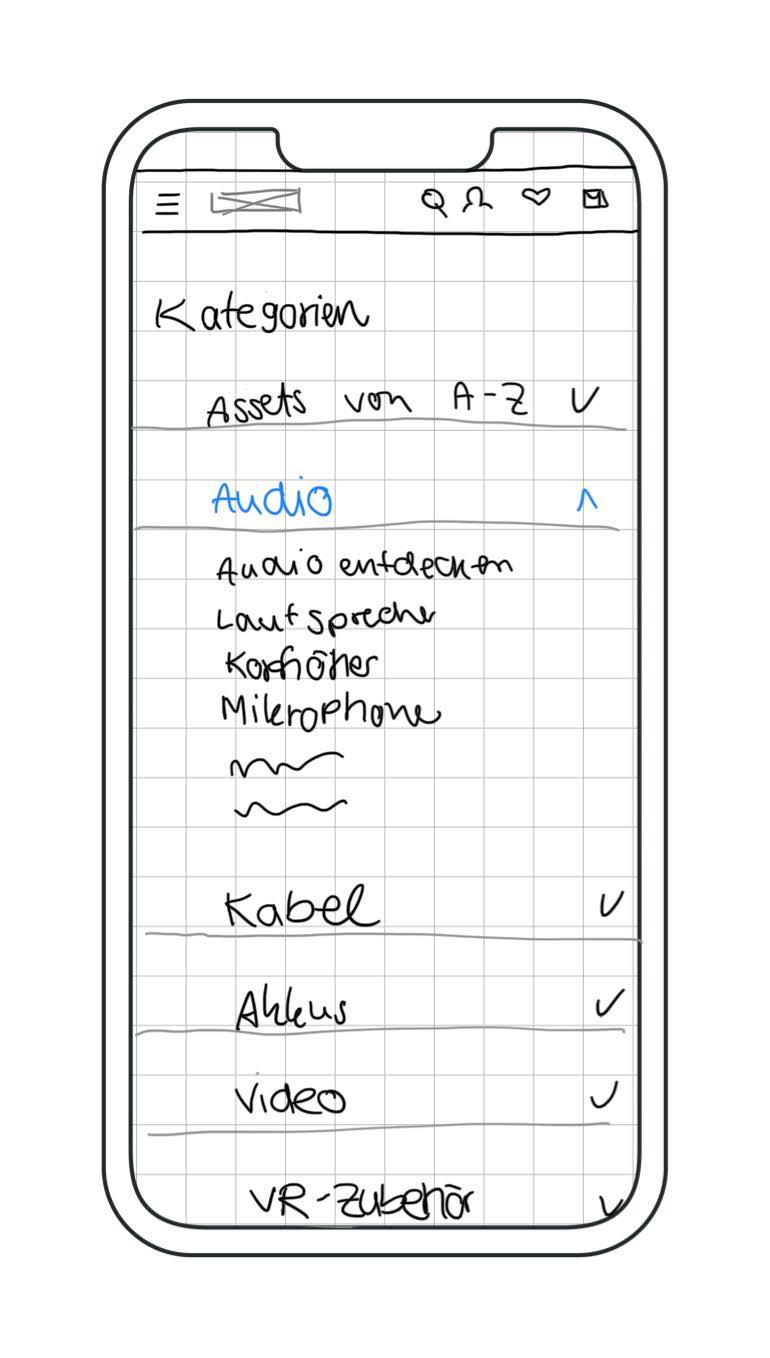 Kategorien
Assets von A-Z
Audio
Audio entdecken
Lautsprecher
Mikrophone
Kabel
Akkus
Video
VR-Zubehör